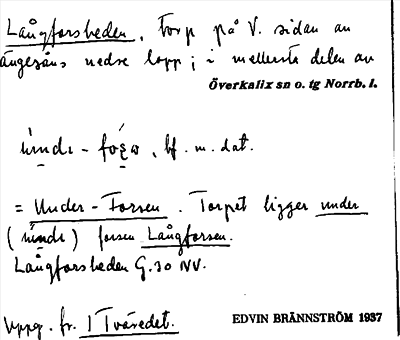 Långforsheden, torp på V. sidan av
ängesåns nedre lopp; i mellersta delen av
Överkalix sn o. tg Norrb. l.
bf. m. dat.
= Under-Forsen. Torpet ligger under
forsen Långforsen.
Långforsheden G.30 NV.
Uppg. fr. 1 Tväredet.
EDVIN BRÄNNSTRÖM 1937